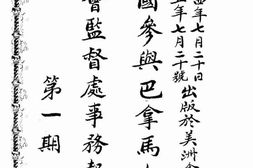 年七月二十日
年七月二十號
出版於美洲
國參與巴拿馬
監督處事務
第一期